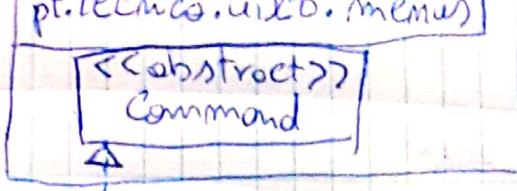 pt.tecnico.uilib.menus
<<abstract>>
Command